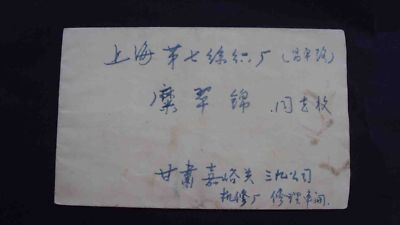 上海第七綜织厂(昌平路)
糜翠錦 同志收
甘肃嘉峪关三九公司
机修厂 修理车间